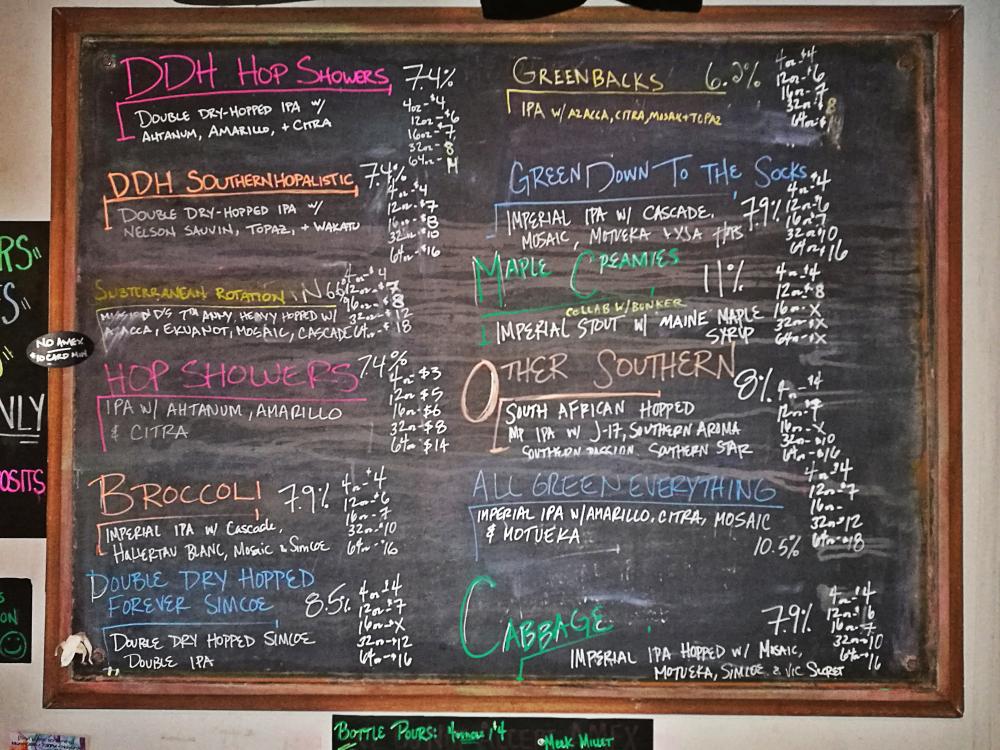 DDH HOP SHOWERS 7.4%
DOUBLE DRY-HOPPED IPA W/
AHTANUM, AMARILLO, + CITRA
4oz-$4
12oz-$6
16oz-7
32oz-8
64oz-14
DDH SOUTHERNHOPALISTIC 7.4%
DOUBLE DRY-HOPPED IPA W/
NELSON SAUVIN, TOPAZ, + WAKATU
4oz-$4
12oz-$7
16oz-$8
32oz-$10
64oz-$16
SUBTERRANEAN ROTATION IN
AZACCA, EKUANOT, MOSAIC, CASCADE
4oz-$4
12oz-$7
16oz-$8
32oz-$12
64oz-$18
HOP SHOWERS 7.4%
IPA W/ AHTANUM, AMARILLO
& CITRA
4oz-$3
12oz-$5
16oz-$6
32oz-$8
64oz-$14
BROCCOLI 7.9%
IMPERIAL IPA W/ CASCADE,
HALLERTAU BLANC, MOSAIC & SIMCOE
4oz-$4
12oz-$6
16oz-7
32oz-$10
64oz-$16
DOUBLE DRY HOPPED
FOREVER SIMCOE 8.5%
DOUBLE DRY HOPPED SIMCOE
DOUBLE IPA
4oz-$4
12oz-$7
16oz-X
32oz-$12
64oz-$16
GREENBACKS
IPA W/ AZACCA, CITRA, MOSAIC+TOPAZ
4oz-$4
12oz-$6
16oz-7
32oz-$8
GREEN DOWN TO THE SOCKS
IMPERIAL IPA W/ CASCADE, 7.9%
MOSAIC, MOTUEKA +
4oz-$4
12oz-$6
16oz-$7
32oz-$10
64oz-$16
MAPLE CREAMIES 11%
COLLAB W/ BUNKER
IMPERIAL STOUT W/ MAINE MAPLE
SYRUP
4oz-$4
12oz-$8
16oz-X
32oz-X
64oz-X
OTHER SOUTHERN 8%
SOUTH AFRICAN HOPPED
IMP IPA W/ J-17, SOUTHERN AROMA
SOUTHERN PASSION, SOUTHERN STAR
4oz-$4
12oz-7
16oz-X
32oz-$10
64oz-$16
ALL GREEN EVERYTHING
IMPERIAL IPA W/ AMARILLO, CITRA, MOSAIC
& MOTUEKA
10.5%
4oz-$4
12oz-$7
16oz-
32oz-$12
64oz-$18
CABBAGE 7.9%
IMPERIAL IPA HOPPED W/ MOSAIC,
MOTUEKA, SIMCOE & VIC SECRET
4oz-$4
12oz-$6
16oz-7
32oz-$10
64oz-$16
NO AMEX
$10 CARD MIN
NLY
OSITS
ON
BOTTLE POURS: $4
MEEK MILLET